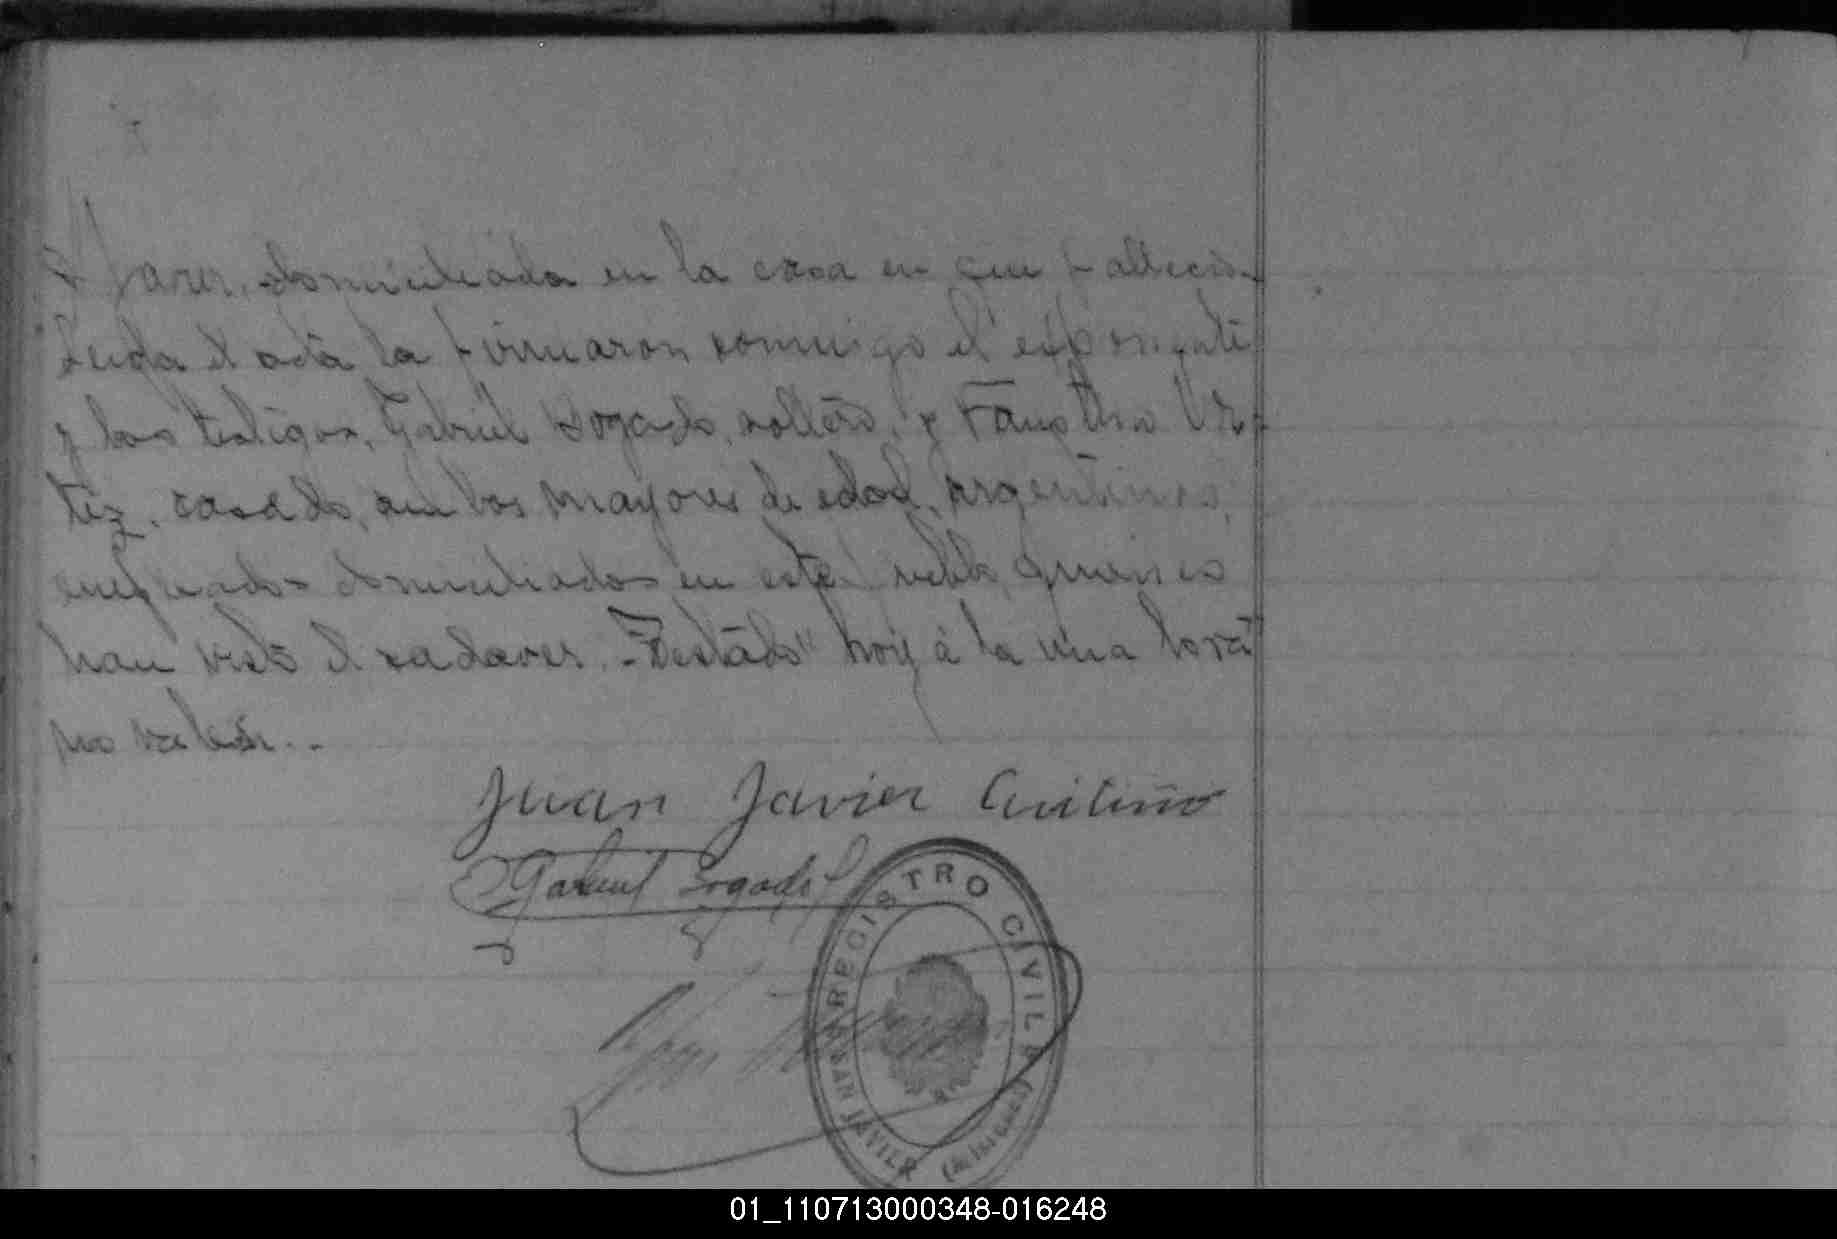 domiciliada en la casa en que fallecio
Leida el acta la firmaron conmigo el esponente
y los testigos, Gabriel Bogado, soltero, y Faustino Ur-
tez, casado, ambos mayores de edad, argentinos,
empleados domiciliados en este pueblo, quienes
han visto el cadaver. -Testado "hoy á la una hora"
no valen.-
Juan Javier Cuitiño
Gabriel Bogado
REGISTRO CIVIL
SAN JAVIER (MISIONES)
01_110713000348-016248